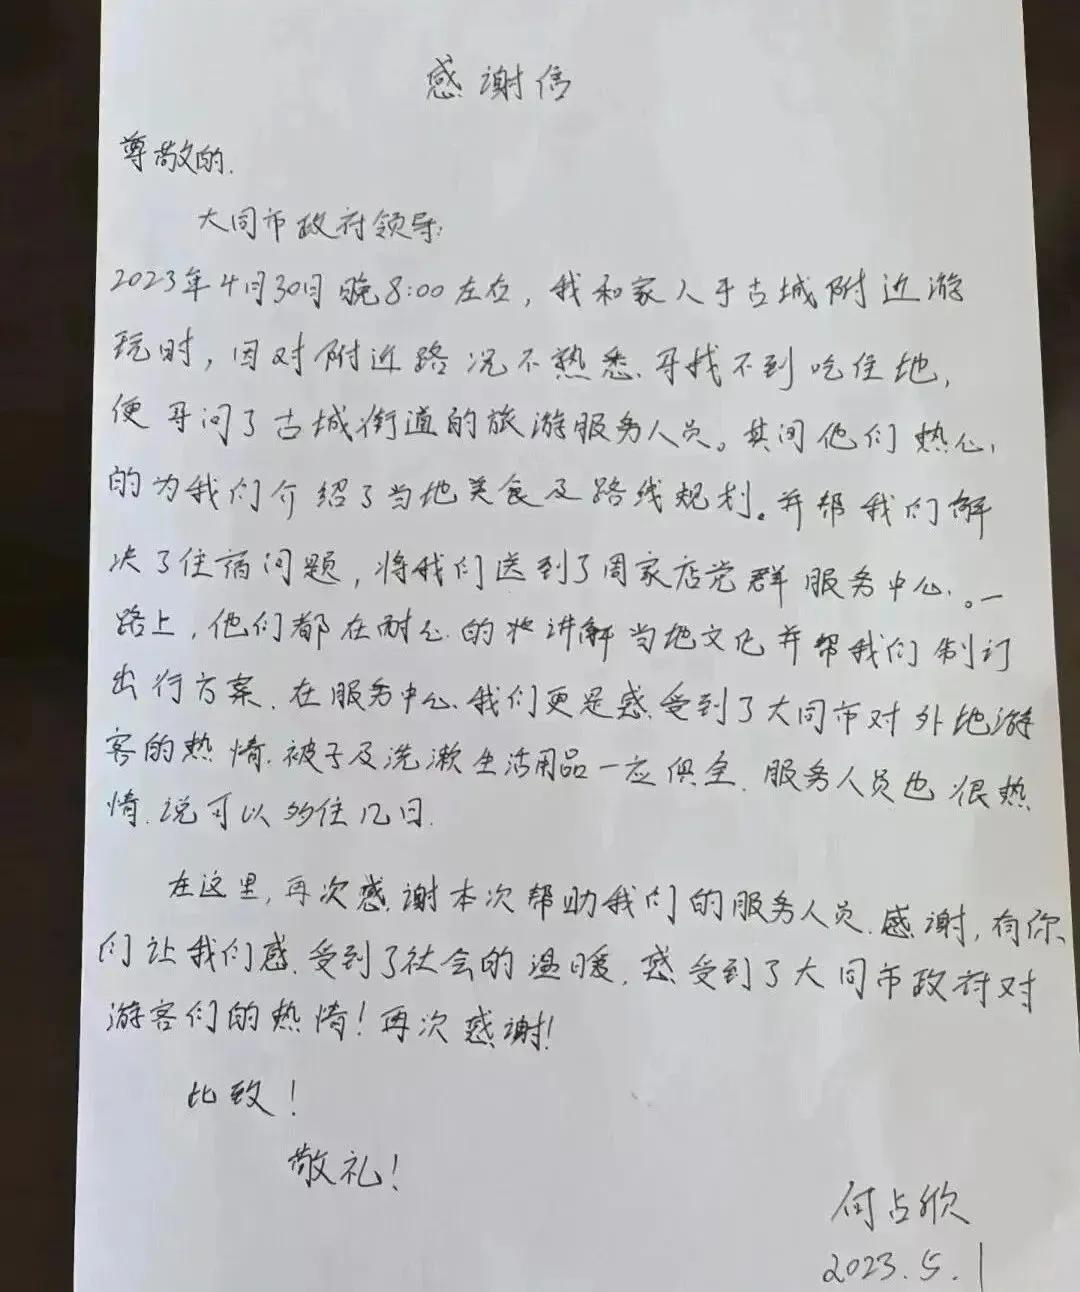 感谢信
尊敬的.
大同市政府领导:
2023年4月30日晚8:00左右，我和家人于古城附近游
玩时，因对附近路况不熟悉、寻找不到吃住地，
便寻问了古城街道的旅游服务人员。其间他们热心
的为我们介绍了当地美食及路线规划。并帮我们解
决了住宿问题，将我们送到了周家店党群服务中心。一
路上，他们都在耐心的讲解当地文化并帮我们制订
出行方案、在服务中心、我们更是感受到了大同市对外地游
客的热情、被子及洗漱生活用品一应俱全、服务人员也很热
情、说可以多住几日.
在这里，再次感谢本次帮助我们的服务人员、感谢，有你
们让我们感受到了社会的温暖、感受到了大同市政府对
游客们的热情！再次感谢！
比致！
敬礼！
何占欣
2023.5.1